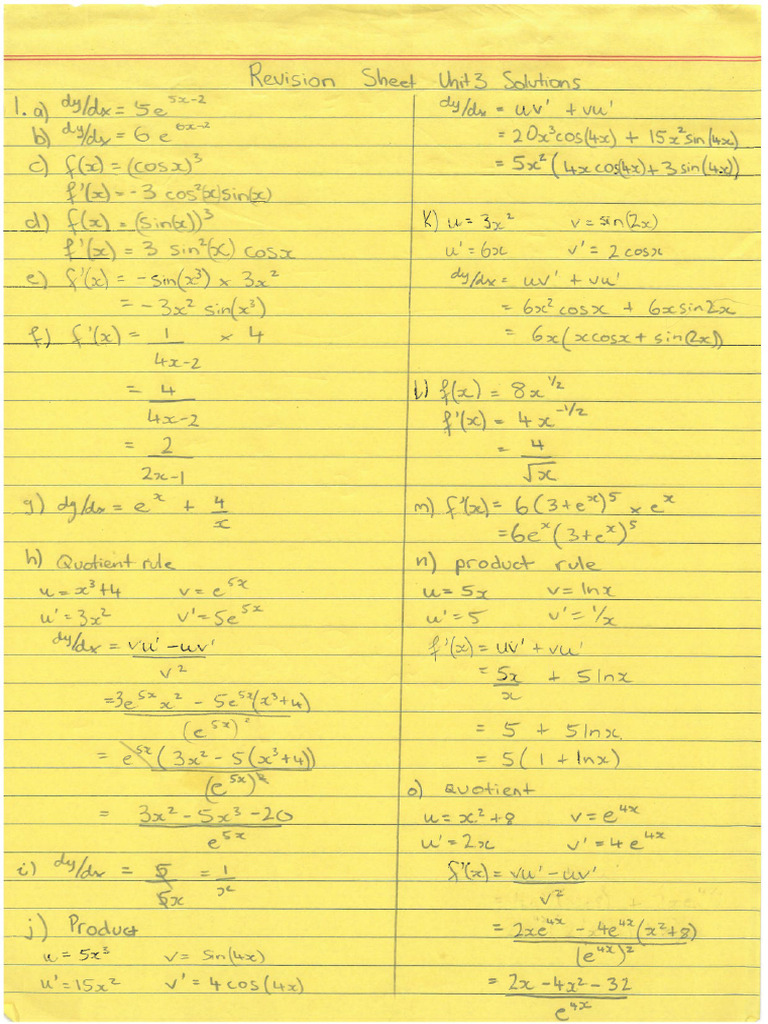 Revision Sheet Unit 3 Solutions
1. a) dy/dx = 5e^(5x-2)
b) dy/dx = 6e^(6x-2)
c) f(x) = (cosx)³
f'(x) = -3 cos²(x)sin(x)
d) f(x) = (sin(x))³
f'(x) = 3 sin²(x) cosx
e) f'(x) = -sin(x³) × 3x²
= -3x² sin(x³)
f) f'(x) = 1/(4x-2) × 4
= 4/(4x-2)
= 2/(2x-1)
g) dy/dx = e^x + 4/x
h) Quotient rule
u = x³+4 v = e^(5x)
u' = 3x² v' = 5e^(5x)
dy/dx = (vu' - uv')/v²
= (3e^(5x)x² - 5e^(5x)(x³+4))/(e^(5x))²
= e^(5x)(3x² - 5(x³+4))/(e^(5x))²
= (3x² - 5x³ - 20)/e^(5x)
i) dy/dx = 5/5x = 1/x
j) Product
u = 5x³ v = sin(4x)
u' = 15x² v' = 4cos(4x)
dy/dx = uv' + vu'
= 20x³cos(4x) + 15x²sin(4x)
= 5x²(4xcos(4x) + 3sin(4x))
K) u = 3x² v = sin(2x)
u' = 6x v' = 2cosx
dy/dx = uv' + vu'
= 6x²cosx + 6xsin2x
= 6x(xcosx + sin(2x))
l) f(x) = 8x^(1/2)
f'(x) = 4x^(-1/2)
= 4/√x
m) f'(x) = 6(3+e^x)^5 × e^x
= 6e^x(3+e^x)^5
n) product rule
u = 5x v = lnx
u' = 5 v' = 1/x
f'(x) = uv' + vu'
= 5x/x + 5lnx
= 5 + 5lnx
= 5(1 + lnx)
o) Quotient
u = x²+8 v = e^(4x)
u' = 2x v' = 4e^(4x)
f'(x) = (vu' - uv')/v²
= (2xe^(4x) - 4e^(4x)(x²+8))/(e^(4x))²
= (2x - 4x² - 32)/e^(4x)